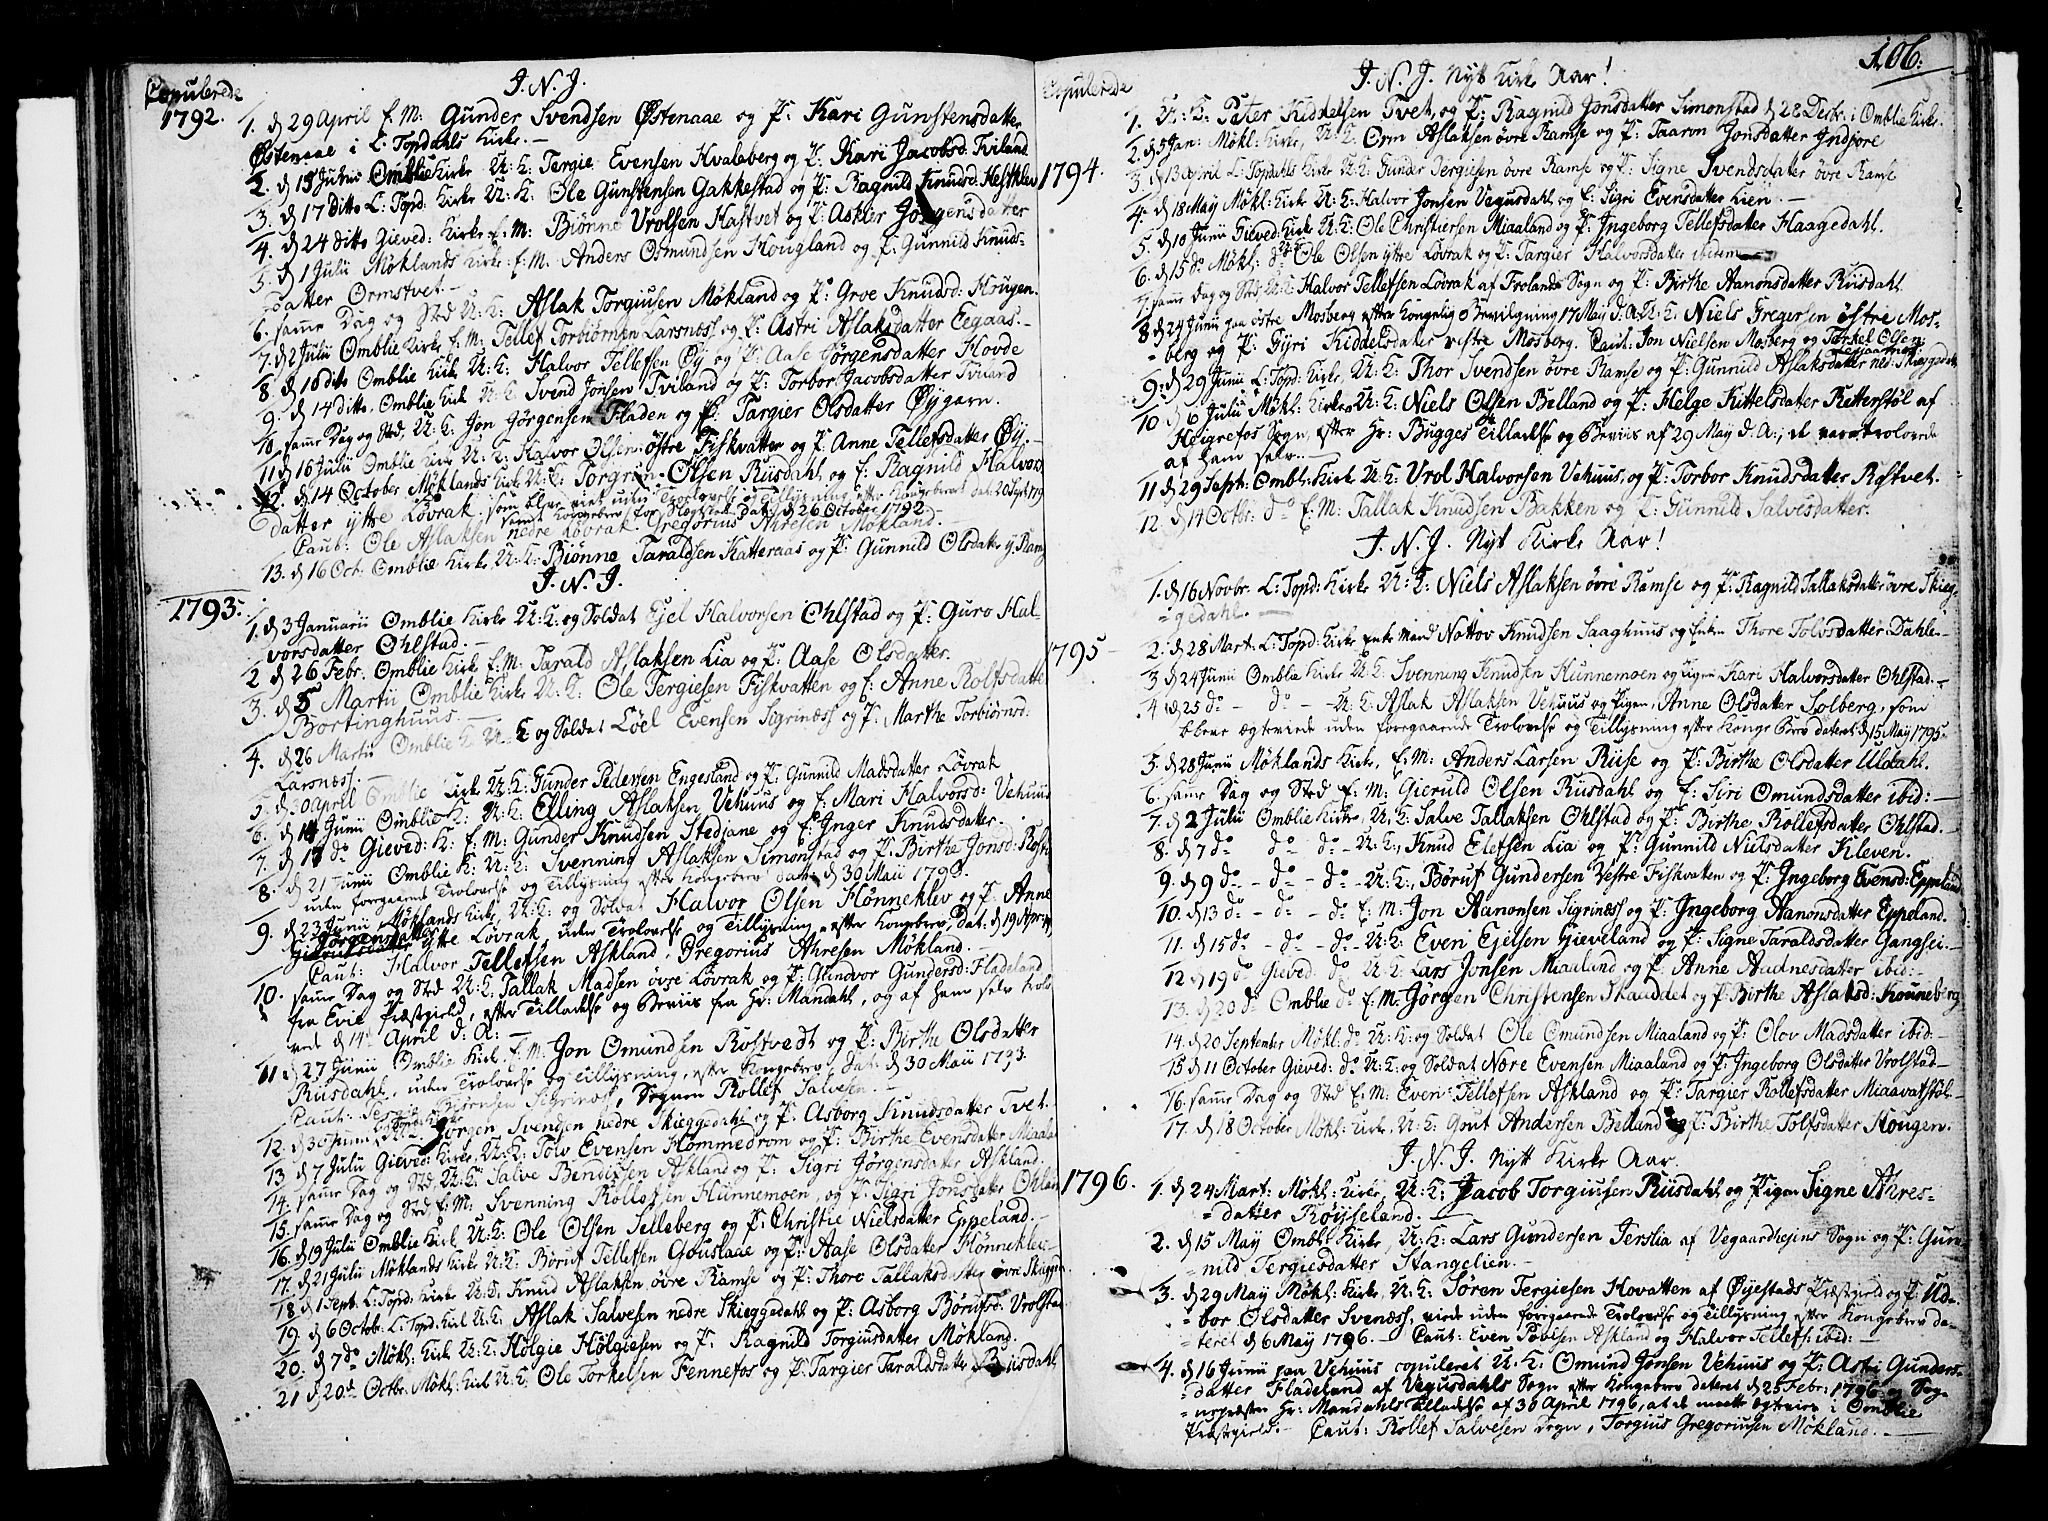 Copulerede
1792.
J. N. J.
1. d 29 April E: M: Gunder Svendsen Østenaae og P: Kari Gunstensdatter
Østenaae i L: Topdahls Kirke.
2. d 15 Junii Omblie Kirke U: K: Tergie Evensen Hvaleberg og P: Kari Jacobsd: Tviland
3. d 17 Ditto L: Topd: Kirke U: K: Ole Gunstensen Gakkestad og P: Ragnild Knudsd: Hestklev
4. d 24 Ditto Gieved: Kirke E: M: Biønne Vrolsen Hastvet og P: Aslier Jørgensdatter
5. d 1 Julii Møklands Kirke E: M: Anders Osmundsen Hougland og P: Gunnild Knuds-
datter Ormstvet.
6. samme Dag og Sted U: K: Aslak Torgiusen Møkland og P: Groe Knudsd: Hougen.
7. d 2 Julii Omblie Kirke E: M: Tellef Torbiørnsen Larsnæs og P: Astri Aslaksdatter Eegaas.
8. d 10 dito Omblie Kirk U: K: Halvor Tellefsen Øÿ og P: Aase Jørgensdatter Hovde
9. d 14 Ditto. Omblie Kirk U: K: Svend Jonsen Tviland og P: Torbor Jacobsdatter Tviland
10. samme Dag og Sted, U: K: Jon Jørgensen Fladen og P: Targier Olsdatter Øÿgarn.
11 d 16 Julii Omblie Kirk U: K: Halvor Olsen østre Fiskvatten og P: Anne Tellefsdatter Øÿ.
12. d 14 October Møklands Kirk U: K: Torgrim Olsen Riisdahl og E: Ragnild Halvors
datter ytte Løvrak, som bleve viet uden Trolovelse og Tillysning efter Kongebrevet dat: 20 Sept 179
samt Kongebrev for Slegtskab Dat: d 26 October 1792.
Caut: Ole Aslaksen nedre Løvrak. Gregorius Ahresen Møkland.
13. d 16 Oct. Omblie Kirke, U: K: Biønne Taraldsen Katteraas og P: Gunnild Olsdatter y: Rams
J. N. J.
1793.
1. d 3 Januarii Omblie Kirke U: K: og Soldat Ejel Halvorsen Ohlstad og P: Guro Hal-
vorsdatter Ohlstad.
2 d 26 Febr. Omblie Kirk E: M: Tarald Aslaksen Lia og P: Aase Olsdatter.
3. d 5 Martii Omblie Kirke U: K: Ole Tergiesen Fiskvatten og E: Anne Rolfsdatter
Bortinghuus.
4. d 26 Martii Omblie K: U: K og Soldat Løel Evensen Sigrinæs og P: Marthe Torbiørnsd:
Larsnæs.
5. d 30 April Omblie Kirke U: K: Gunder Pedersen Engesland og P: Gunnild Madsdatter Løvrak
6. d 14 Junii Omblie K: U: K: Elling Aslaksen Vehuus og E: Mari Halvorsd: Vehuus
7. d 17 do Gieved: K: E: M: Gunder Knudsen Stedjane og E: Inger Knudsdatter.
8. d 21 Junii Omblie K: U: K: Svenning Aslaksen Simonstad og P: Birthe Jonsd: Rostv
uden forgaaende Trolovelse og Tillysning efter Kongebrev dat: d 30 Maii 1793.
9. d 23 Junii Møklands Kirke, U: K: og Soldat Halvor Olsen Hønneklev og P: Anne
Jørgensdatter
ytte Løvrak, uden Trolovelse og Tillysning, efter Kongebrev, Dat. d 19 Apr: 179
Caut: Halvor Tellefsen Askland. Gregorius Ahresen Møkland.
10. samme Dag og Sted U: K: Tallak Madsen øvre Løvrak og P: Gunvor Gundersd: Fladeland
fra Evie Præstgield, efter Tilladelse og Beviis fra Hr: Mandahl, og af ham selv trolo
vede d 14 April d: A:
11. d 27 Junii Omblie Kirk E: M: Jon Omundsen Rostvedt og P: Birthe Olsdatter
Riisdahl, uden Trolovelse og Tillysning, efter Kongebrev Dat: d 30 Maii 1793.
Caut: Tergie Biørnsen Sigrinæs, Sognem Rollef Salvesen.
12. d 30 Junii L: Topd: Kirke Jørgen Svendsen nedre Skieggedahl og P: Asborg Knudsdatter Tvet.
13 d 7 Julii Gieved: Kirke, U: K: Tolv Evensen Hommedrom og P: Birthe Evensdatter Miaala
14. samme Dag og Sted, U: K: Salve Bendixsen Askland og P: Sigri Jørgensdatter Askland.
15. samme Dag og Sted E: M: Svenning Rollefsen Hunnemoen, og P: Sigri Jonsdatter Ohlsta
16. d 19 Julii Omblie Kirk U: K: Ole Olsen Selleberg og P: Christie Nielsdatter Eppeland.
17. d 21 Julii Møklands Kirke U: K: Børuf Tellefsen Gouslaae og P: Aase Olsdatter Hønneklev
18 d 1 Sept. L: Topd: Kirke U: K: Knud Aslaksen øvre Ramse og P: Thore Tallaksdatter øvre Skiegge
19. d 6 Octobr. L: Topd: Kirk U: K: Aslak Salvesen nedre Skieggedahl og P: Asborg Børufsd: Vrolstad
20. d 7 do Møkl: Kirk U: K: Hølgie Hølgiesen og P: Ragnild Torgiusdatter Møkland.
21 d 20 do Octbr. Møkl: Kirk U: K: Ole Torkelsen Fennefos og P: Targier Taraldsdatter Riisdahl
106.
Copulerede
J. N. J. Nytt Kirke Aar!
1. U: K: Peter Kiddelsen Tvet, og P: Ragnild Jonsdatter Simonstad d 28 Decbr. i Omblie Kirke.
1794.
2. d 5 Jan: Møkl: Kirke, U: K: Orm Aslaksen øvre Ramse og P: Taaron Jonsdatter Indjore
3. d 13 April L: Topdahls Kirke U: K: Gunder Tergiesen øvre Ramse og P: Signe Svendsdatter øvre Ramse
4. d 18 May Møkl: Kirke U: K: Halvor Jonsen Vegusdahl og E: Sigri Evensdatter Lien.
5. d 10 Junii Gieved: Kirke U: K: Ole Christensen Miaaland og P: Ingeborg Tellefsdatter Haagedahl.
6. d 15 do Møkl: do U: K: Ole Olsen ytte Løvrak og P: Targier Halvorsdatter ibidem
7. samme Dag og Sted U: K: Halvor Tellefsen Løvrak af Frolands Sogn og P: Birthe Aanonsdatter Riisdahl.
8. d 24 Junii paa østre Mosberg efter Kongelig Bevilgning 17 May d. A. U: K: Niels Gregersen østre Mos-
berg og P: Gyri Kiddelsdatter vestre Mosberg. Caut: Jon Nielsen Mosberg og Torkel Olsen
9. d 29 Junii L: Topd: Kirke, U: K: Thor Svendsen øvre Ramse og P: Gunnild Aslaksdatter ned: Skieggedahl
10. d 6 Julii Møkl: Kirke U: K: Niels Olsen Belland og P: Helge Kittelsdatter Retterstøl af
Heirefos Sogn, efter Hr: Bugges Tilladelse og Beviis af 29 May d. A:, de vare trolovede
af ham selv.
11 d 29 Sept: Ombl: Kirk U: K: Vrol Halvorsen Vehuus, og P: Torbor Knudsdatter Røstvet.
12. d 14 Octbr: do E: M: Tallak Knudsen Bakken og E: Gunnild Salvesdatter.
J. N. J. Nyt Kirke Aar!
1. d 16 Novbr. L: Topd: Kirke U: K: Niels Aslaksen øvre Ramse og P: Ragnild Tallaksdatter øvre Skieg-
gedahl.
1795
2. d 28 Mart. L: Topd: Kirke Enke Mand Nottov Knudsen Saaghuus og Enken Thore Tolvsdatter Dahle.
3 d 24 Junii Omblie Kirke U: K: Svenning Knudsen Hunnemoen og Pigen Kari Halvorsdatter Ohlstad.
4 d 25 do - do - U: K: Aslak Aslaksen Vehuus og Pigen, Anne Olsdatter Solberg, som
bleve ægteviede uden foregaaende Trolovelse og Tillysning efter Konge Brev dateret d 15 May 1795.
5. d 28 Junii Møklands Kirke, E: M: Anders Larsen Riise og P: Birthe Olsdatter Uldahl.
6. samme Dag og Sted E: M: Gieruld Olsen Riisdahl og E: Siri Omundsdatter ibid:
7. d 2 Julii Omblie Kirke, U: K: Salve Tallaksen Ohlstad og P: Birthe Rollefsdatter Ohlstad.
8. d 7 do do - do - U: K:, Knud Elefsen Lia og P: Gunnild Nielsdatter Kleven.
9. d 9 do - do - do - U: K:, Børuf Gundersen Vestre Fiskvatten og P: Ingeborg Evensd: Eppeland
10. d 13 do - do - do E: M: Jon Aanonsen Sigrinæs og P: Ingeborg Aanonsdatter Eppeland.
11. d 15 do - do - do - U: K: Even Ejelsen Gieveland og P: Signe Taraldsdatter Gangsei.
12 d 19 do Gieved: do U: K: Lars Jonsen Miaaland og P: Anne Audnesdatter ibid:
13. d 20 do Omblie do E: M: Jørgen Christensen Skauddet og P: Birthe Aslaksd: Kouneberg
14. d 20 September Møkl: do U: K: og Soldat Ole Omundsen Miaaland og P: Olov Madsdatter ibid:
15 d 11 October Gieved: do U: K: og Soldat Nære Evensen Miaaland og P: Ingeborg Olsdatter Vrolstad
16. samme Dag og Sted E: M: Even Tellefsen Askland og P: Targier Rollefsdatter Miaavatstøl.
17. d 18 October Møkl: Kirke, U: K: Gout Andersen Belland og P: Birthe Tolfsdatter Hougen.
J. N. J. Nytt Kirke Aar.
1796.
1. d 24 Mart: Møkl: Kirke, U: K: Jacob Torgiusen Riisdahl og Pigen Signe Ahres-
datter Røyseland.
2. d 15 May Ombl: Kirke, U: K: Lars Gundersen Jerslia af Vegaardhejens Sogn og P: Gun-
nild Tergiesdatter Stangelien.
3. d 29 May Møkl: Kirke, U: K: Søren Tergiesen Hovatten af Øyestads Præstgield og P: Ud-
bor Olsdatter Svenæs, viede uden forgaaende Trolovelse og Tillysning efter Kongebrev da-
teret d 6 May 1796. - Caut: Even Povesen Askland og Halvor Tellefs: ibid:
4. d 16 Junii paa Vehuus copuleret U: K: Omund Jonsen Vehuus og P: Asti Gunders-
datter Fladeland af Vegusdahls Sogn efter Kongebrev dateret d 25 Febr: 1796 og Sog-
nepræsten Hr: Mandahls Tilladelse af 30 April 1796, at de maatte ægtevies i Omblie
Præstgield. - Caut: Rollef Salvesen Degn, Torgius Gregoriusen Møkland.